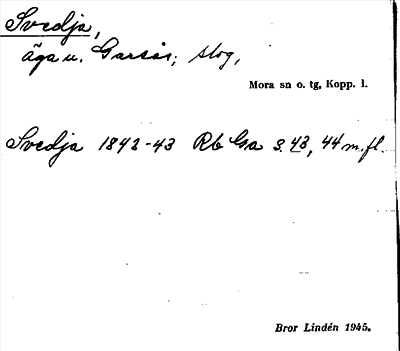 Svedja,
äga u. Garsås; skog,
Mora sn o. tg, Kopp. l.
Svedja 1842-43 Rb Gsa s. 43, 44 m.fl.
Bror Lindén 1945.